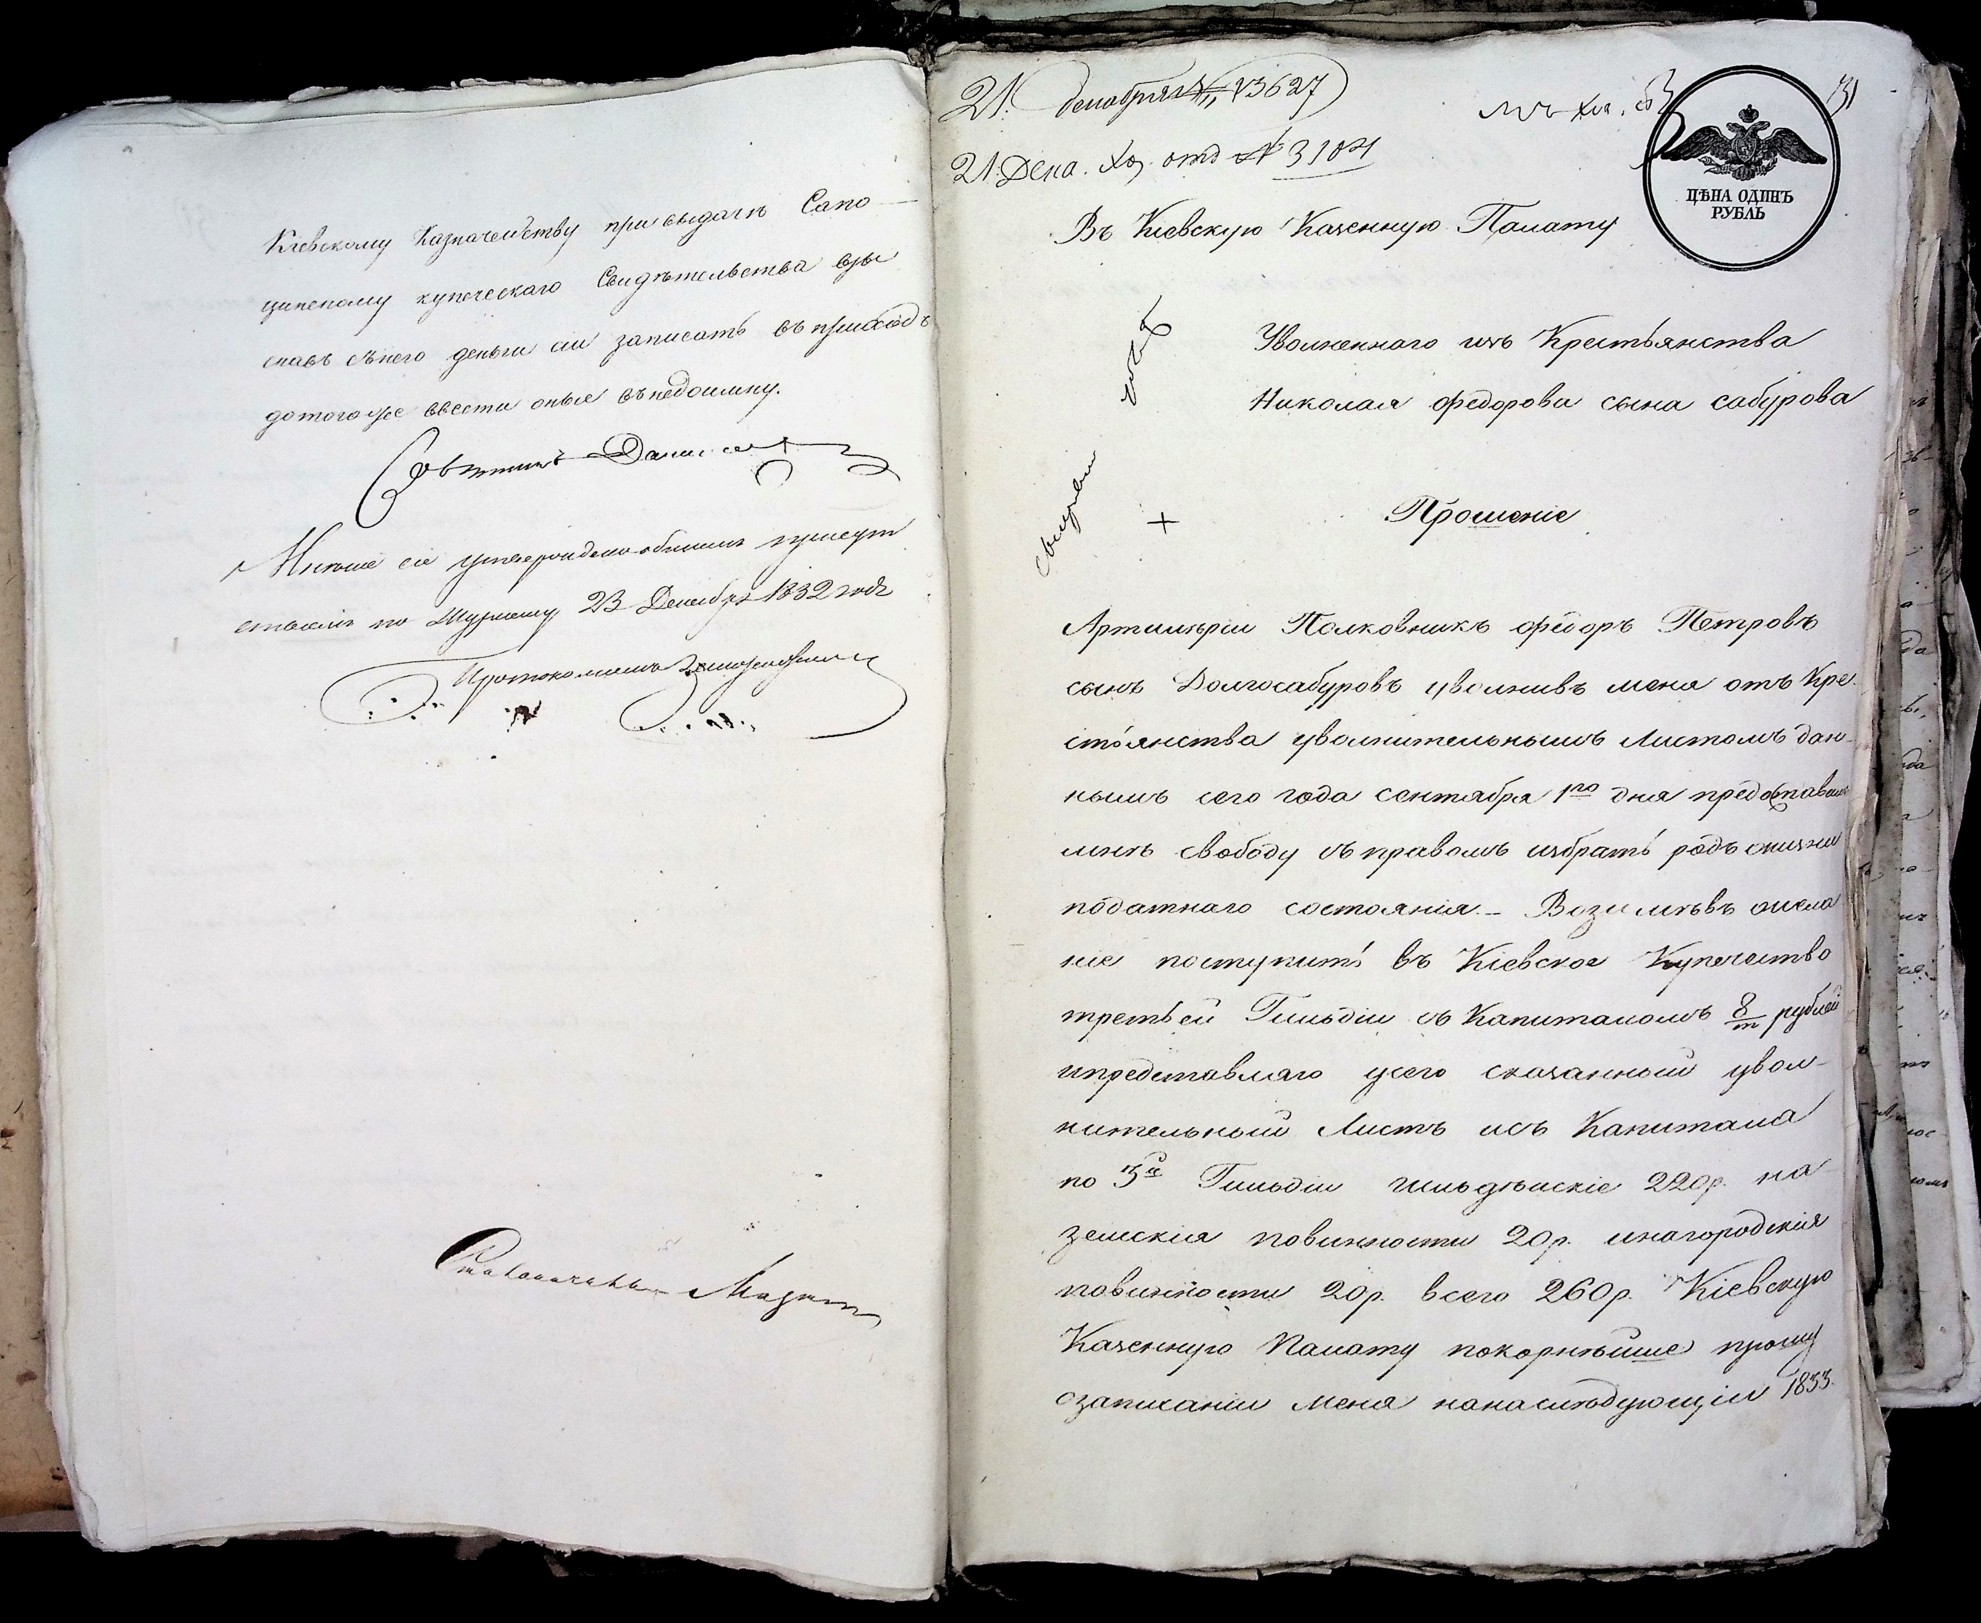 Кіевскому Казначейству при выдачѣ Сапо
цинскому купеческаго Свидѣтельства взы
скавъ съ него деньги сіи записать въ приходъ
до того же ввести оные въ недоимку.
Совѣтникъ
Мнѣніе сіе утверждено общимъ присут
ствіемъ по Журналу 23 Декабря 1832 года
Протоколистъ
Столоначальникъ
21. декабря № 13627
21 Дека. Хоз. отд № 3184
31
ЦѢНА ОДИНЪ
РУБЛЬ
Въ Кіевскую Казенную Палату
Уволеннаго изъ Крестьянства
Николая Федорова сына Сабурова
Прошеніе
Артилѣріи Полковникъ Федоръ Петровъ
сынъ Долгосабуровъ уволнивъ меня отъ Кре
стьянства уволнительнымъ Листомъ дан
нымъ сего года сентября 1го дня предоставилъ
мнѣ свободу съ правомъ избрать родъ жизни
податнаго состоянія. – Возимѣвъ жела
ніе поступить въ Кіевское Купечество
третьей Гильдіи съ Капиталомъ 8/т рублей
и представляю у сего сказанный увол-
нительный Листъ и съ Капитала
по 3й Гильдіи гильдѣйскіе 220р. на
земскія повинности 20р. и на городскія
повинности 20р. всего 260р. Кіевскую
Казенную Палату покорнѣйше прошу
о записаніи меня на наслѣдующій 1833.